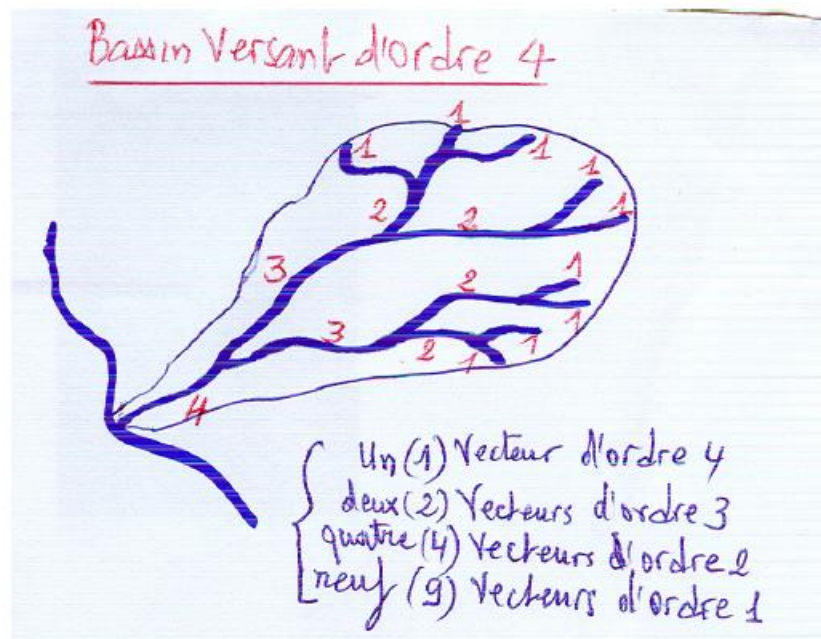 Bassin Versant d'Ordre 4
1
1
1
1
1
2
2
3
1
2
1
3
1
2
1
4
Un (1) Vecteur d'ordre 4
deux (2) Vecteurs d'ordre 3
quatre (4) Vecteurs d'ordre 2
neuf (9) Vecteurs d'ordre 1